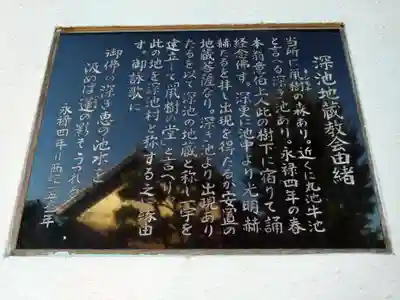 深池地蔵教会由緒
当所に風樹の森あり。近くに丸池牛池
と言へる深き池あり。永禄四年の春
本翁香伯上人此の樹下に宿りて誦
経念佛す。深更に池中より光明赫
赫たるを拝し出現を得たるが安置の
地蔵菩薩なり。深き池より出現あり
たるを以て深池の地蔵と称し一宇を
建立して風樹の堂と言へり。
此の地を深池村と称する之に縁由
す。御詠歌に
御佛の深き恵の池水を
汲めば蓮の影ぞうつれる
永禄四年は西紀一五六一年